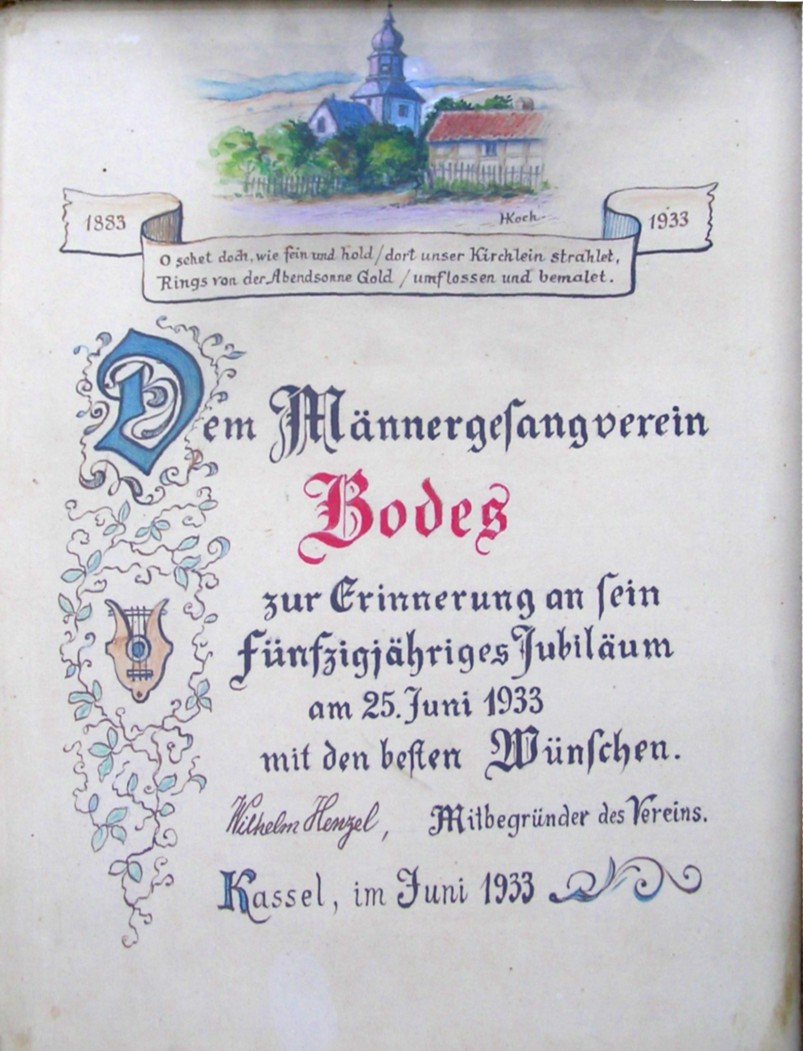 HKoch
1883
1933
O sehet doch, wie fein und hold / dort unser Kirchlein strahlet,
Rings von der Abendsonne Gold / umflossen und bemalet.
Dem Männergesangverein
Bodes
zur Erinnerung an sein
fünfzigjähriges Jubiläum
am 25. Juni 1933
mit den besten Wünschen.
Wilhelm Henzel, Mitbegründer des Vereins.
Kassel, im Juni 1933